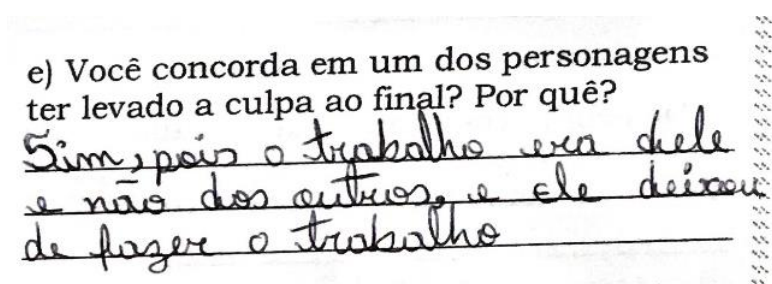 e) Você concorda em um dos personagens
ter levado a culpa ao final? Por quê?
Sim, pois o trabalho era dele
e não dos outros, e ele deixou
de fazer o trabalho